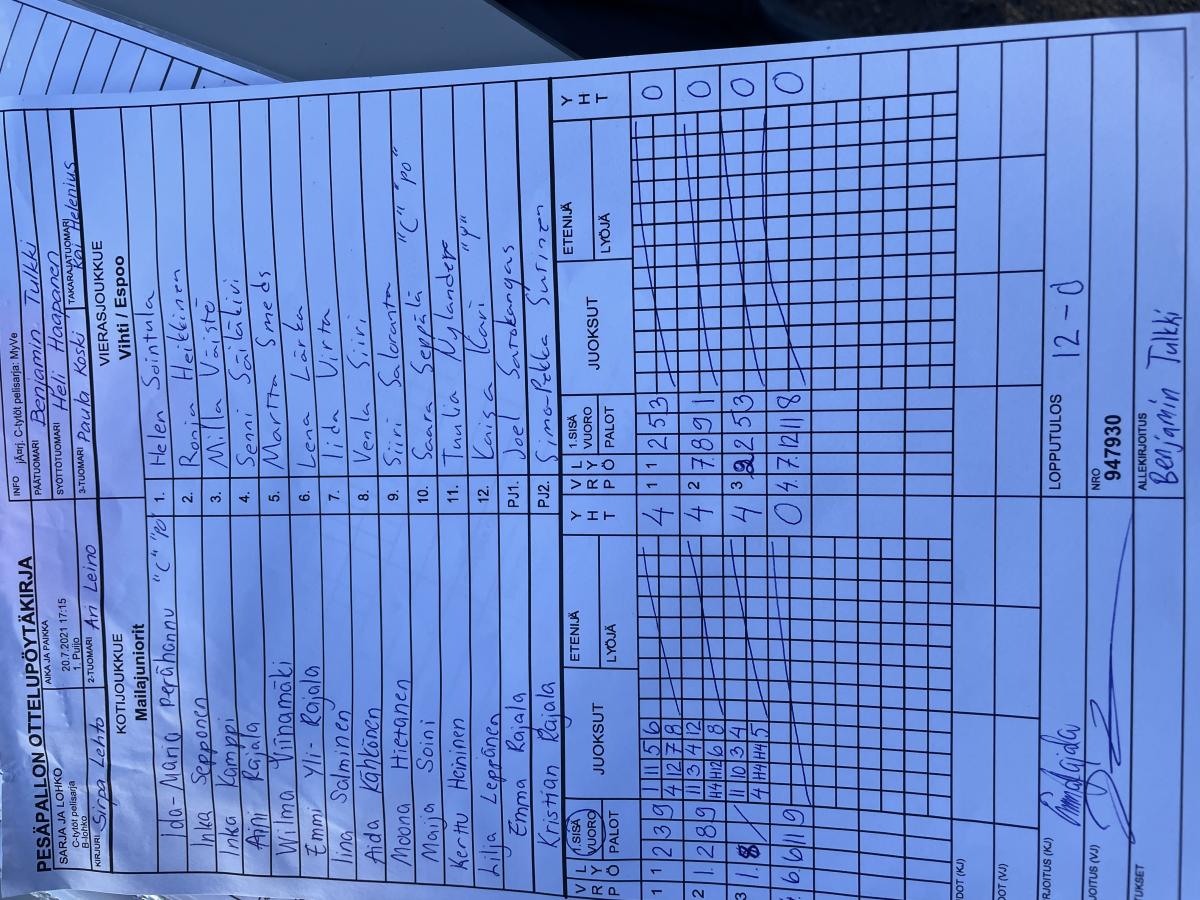 PESÄPALLON OTTELUPÖYTÄKIRJA
INFO järj. C-tytöt pelisarja: MyVe
SARJA JA LOHKO
C-tytöt pelisarja
B-lohko
AIKA JA PAIKKA
20.7.2021 17:15
1. Puijo
PÄÄTUOMARI Benjamin Tulkki
SYÖTTÖTUOMARI Heli Haapanen
KIRJURI Sirpa Lehto
2-TUOMARI Ari Leino
3-TUOMARI Paula Koski
TAKARAJATUOMARI Kai Helenius
KOTIJOUKKUE
Mailajuniorit
VIERASJOUKKUE
Vihti / Espoo
Ida-Maria Perähannu "C" "po" 1. Helen Sointula
Inka Sepponen 2. Ronja Heikkinen
Inka Kamppi 3. Milla Väistö
Aini Rajala 4. Senni Säiläkivi
Wilma Viinamäki 5. Martta Smeds
Emmi Yli-Rajala 6. Lena Lärka
Iina Salminen 7. Iida Virta
Aida Kähkönen 8. Venla Siiri
Moona Hietanen 9. Siiri Saloranta
Maija Soini 10. Saara Seppälä "C" "po"
Kerttu Heininen 11. Tuulia Nylander
Lilja Leppänen 12. Kaisa Kari "Y"
Emma Rajala PJ1. Joel Satokangas
Kristian Rajala PJ2. Simo-Pekka Surinen
VRP LYÖ 1.SISÄ VUORO PALOT JUOKSUT ETENIJÄ LYÖJÄ YHT VRP LYÖ 1.SISÄ VUORO PALOT JUOKSUT ETENIJÄ LYÖJÄ YHT
1 1 2 3 9 11 11 5 6 4 1 1 2 5 3 0
4 12 7 8
2 1. 2 8 9 11 3 4 12 4 2 4 7. 8 9 1 0
H4 H12 6 8
3 1. 8 11 10 3 4 4 3 2 2 5 3 0
4 H4 H4 5
6. 6 11 9 0 4. 7. 12 11 8 0
LOPPUTULOS 12-0
NRO
947930
ALLEKIRJOITUS
Benjamin Tulkki
DOT (KJ)
DOT (VJ)
RJOITUS (KJ)
JOITUS (VJ)
TUKSET